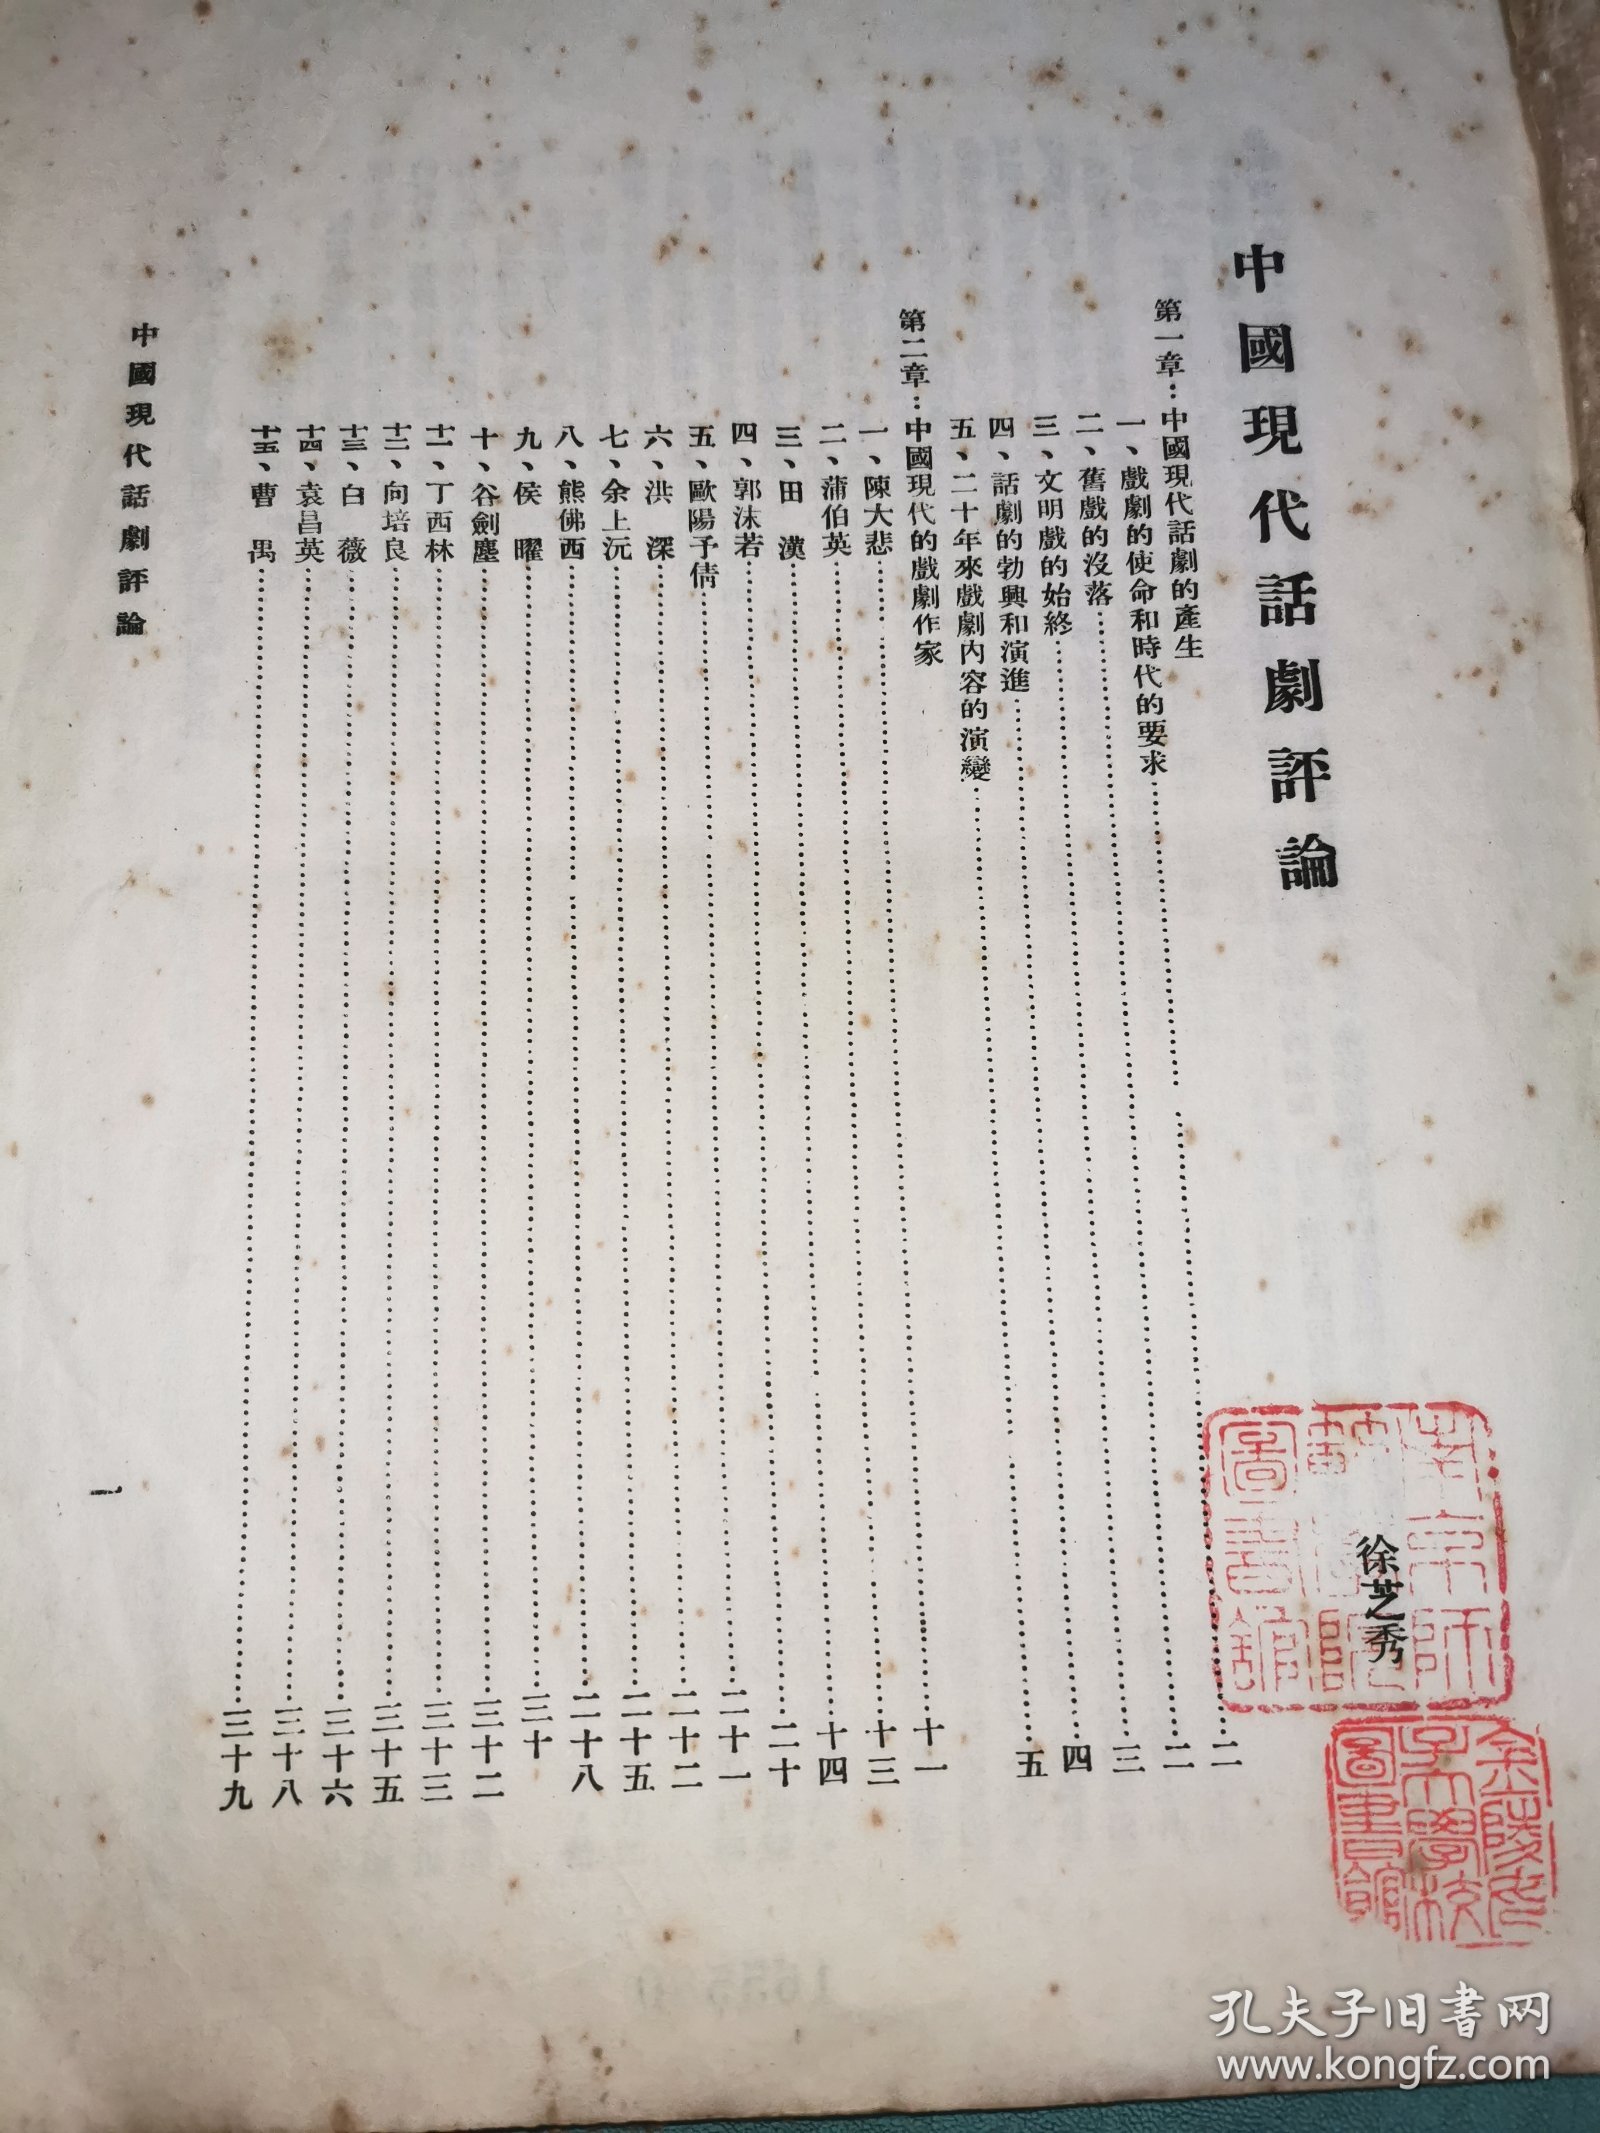 中國現代話劇評論
徐芝秀
第一章：中國現代話劇的產生……二
一、戲劇的使命和時代的要求……二
二、舊戲的沒落……三
三、文明戲的始終……四
四、話劇的勃興和演進……五
五、二十年來戲劇內容的演變……
第二章：中國現代的戲劇作家……十一
一、陳大悲……十三
二、蒲伯英……十四
三、田 漢……二十
四、郭沫若……二十一
五、歐陽予倩……二十二
六、洪 深……二十五
七、余上沅……二十八
八、熊佛西……三十
九、侯 曜……三十二
十、谷劍塵……三十三
十一、丁西林……三十五
十二、向培良……三十六
十三、白 薇……三十八
十四、袁昌英……三十九
十五、曹 禺……
中國現代話劇評論
一
南京師範學院圖書館
金陵女子大學校圖書館
孔夫子旧书网
www.kongfz.com